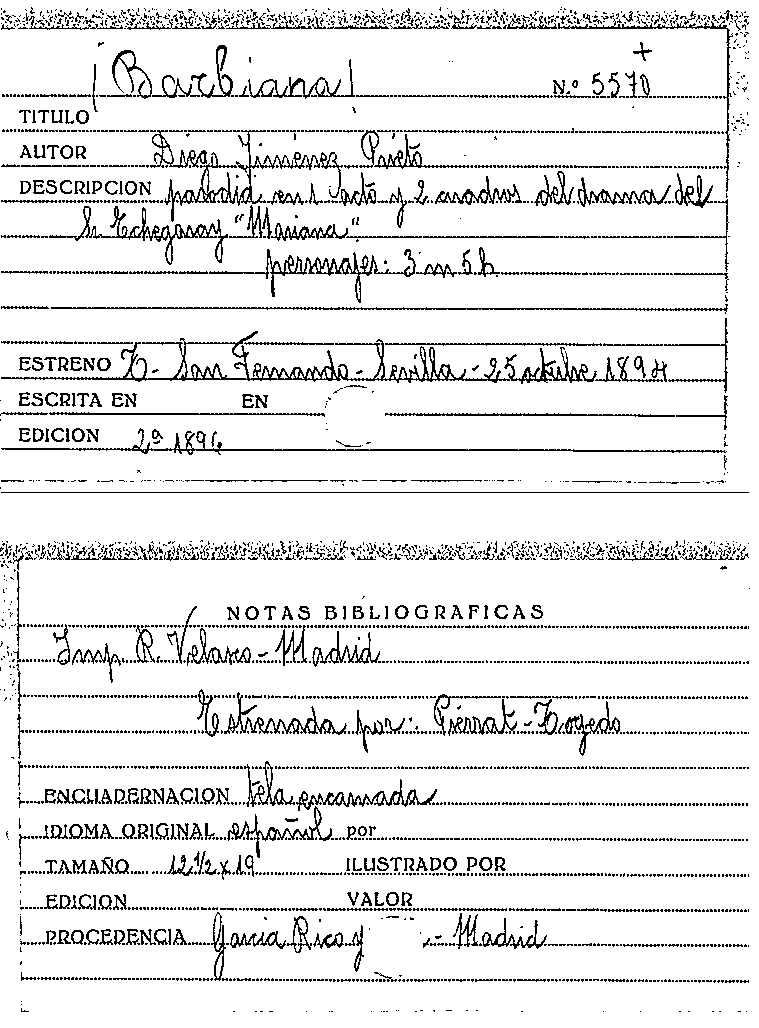 ¡Barbiana!
N.º 5570
+
TITULO
AUTOR Diego Jiménez Prieto
DESCRIPCION parodia en 1 acto y 2 cuadros del drama del
Sr Echegaray "Mariana"
personajes: 3 m 5 h.
ESTRENO T- San Fernando - Sevilla - 25 octubre 1894
ESCRITA EN EN
EDICION 2ª 1894
NOTAS BIBLIOGRAFICAS
Imp. R. Velasco - Madrid
Estrenada por: Pierrat - Togedo
ENCUADERNACION tela encarnada
IDIOMA ORIGINAL español por
TAMAÑO 12 1/2 x 19 ILUSTRADO POR
EDICION VALOR
PROCEDENCIA Garcia Rico y - Madrid